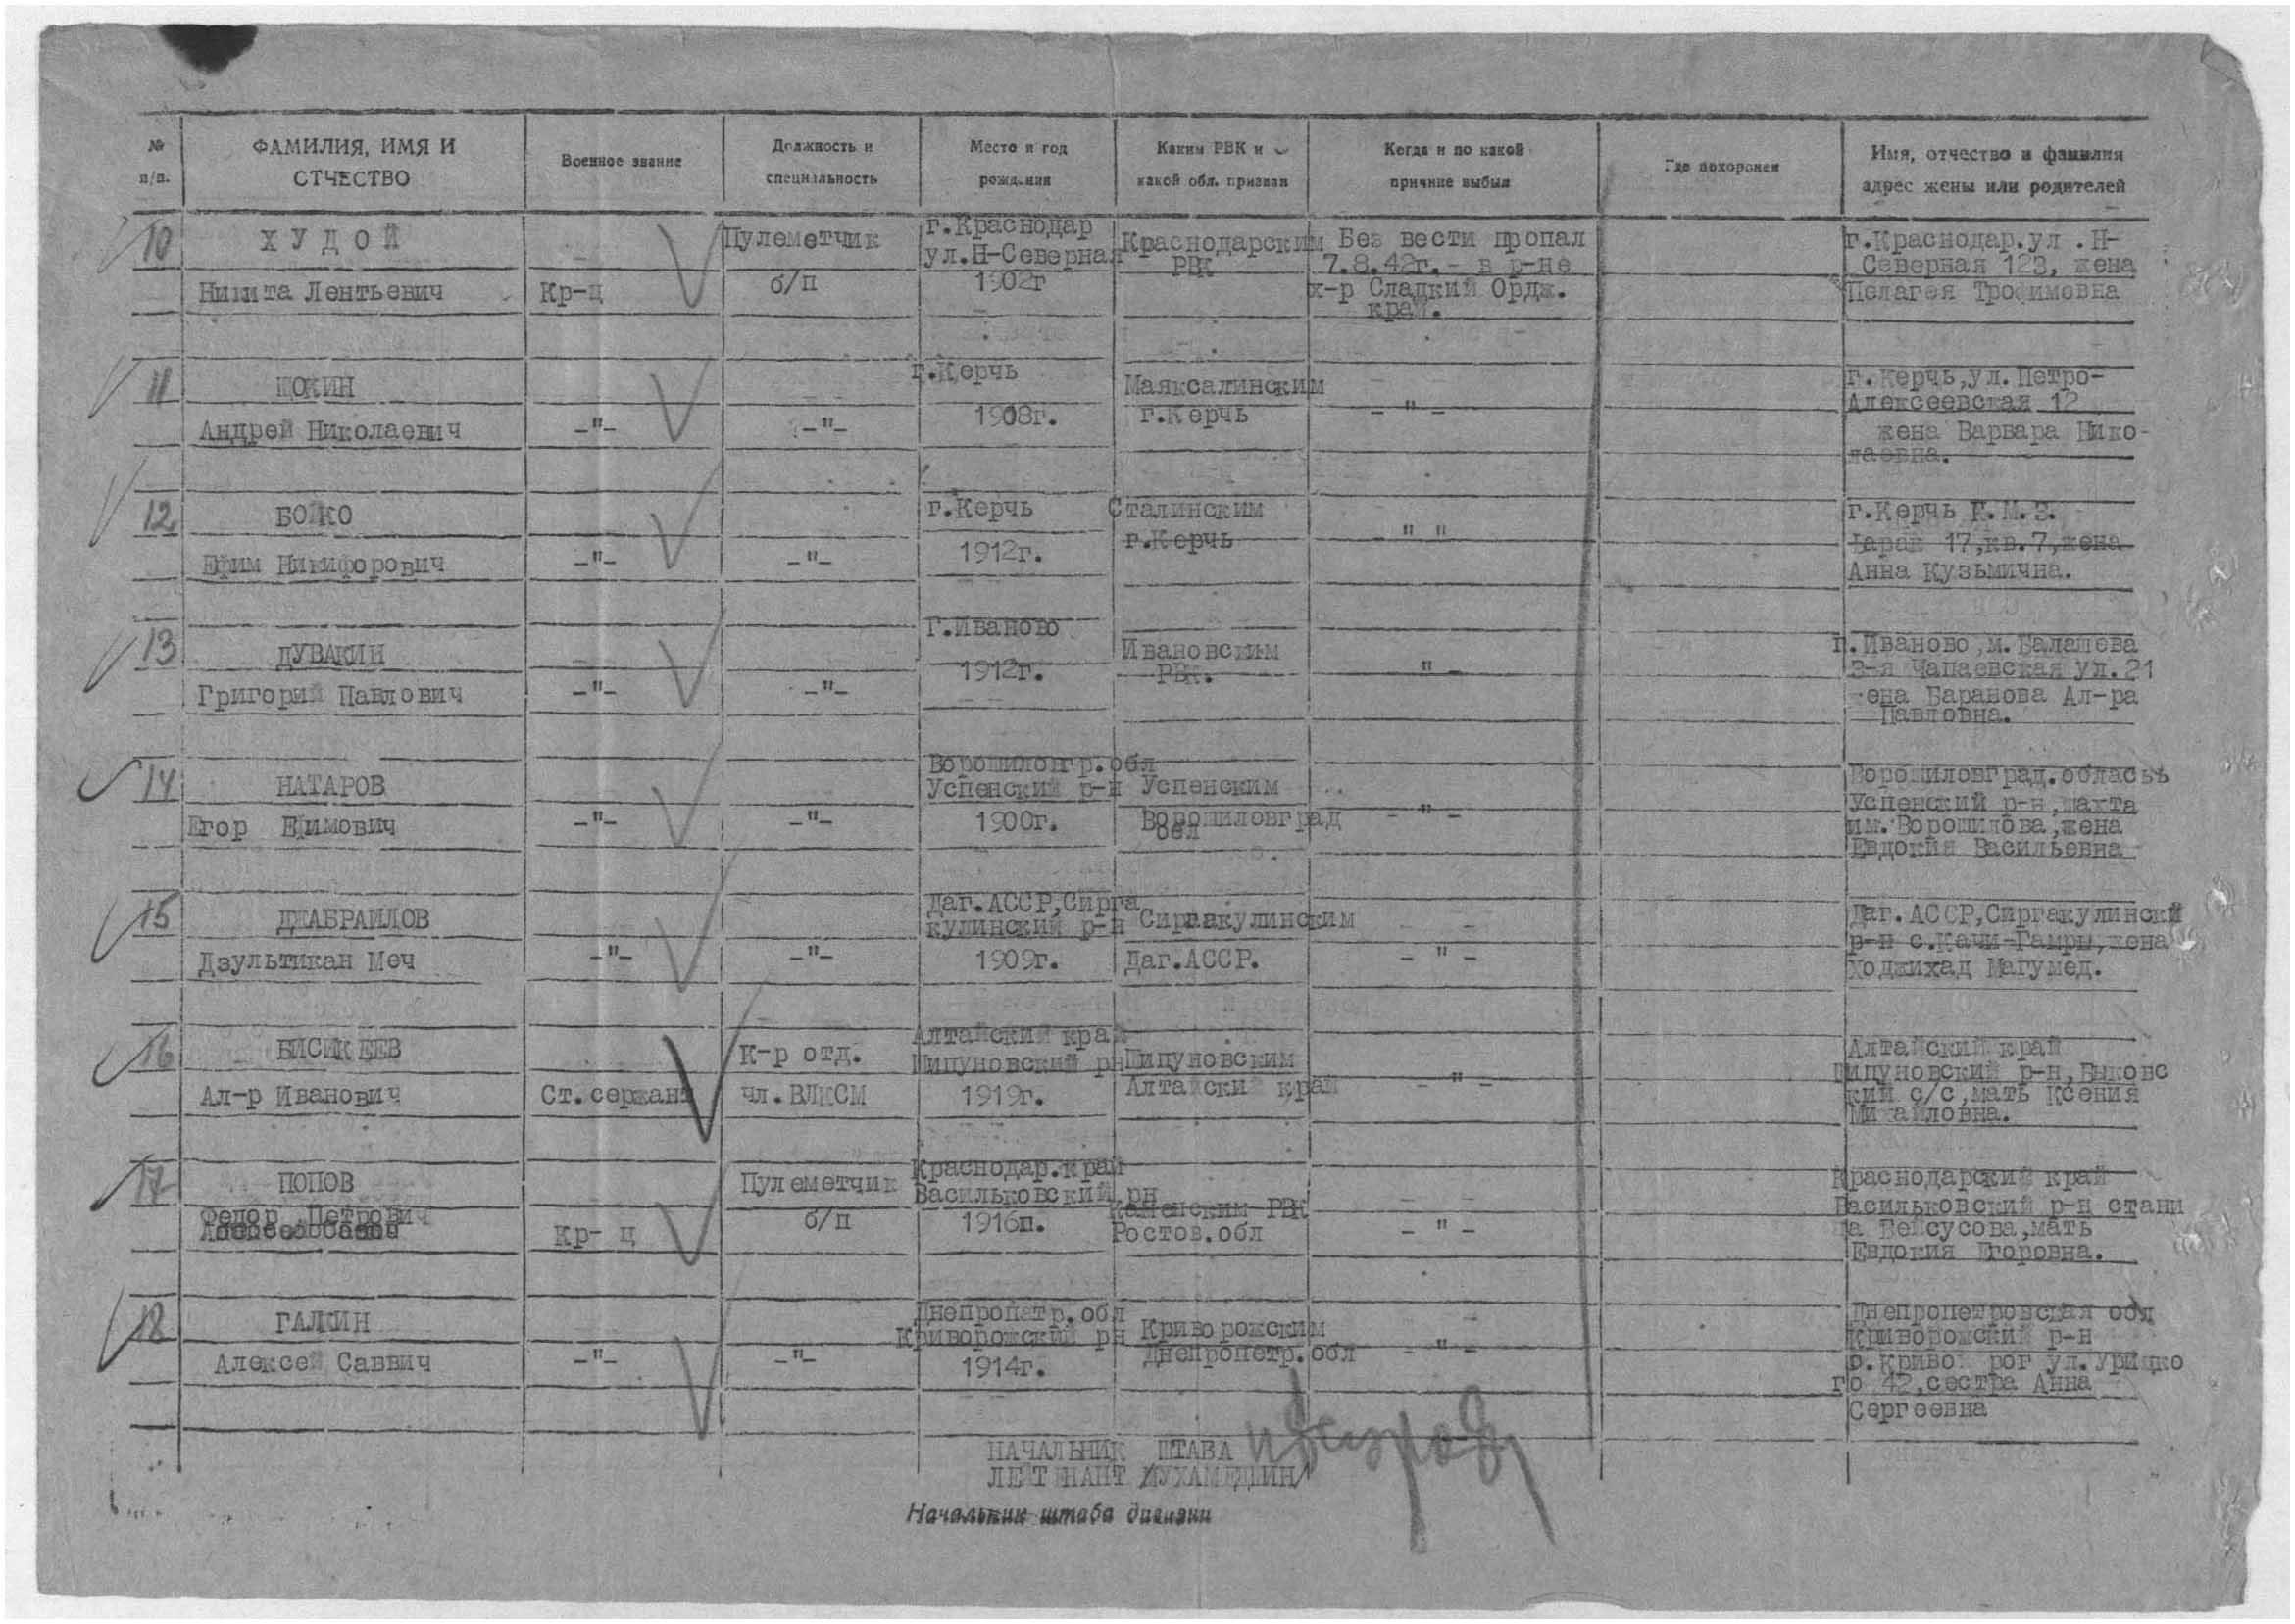 № п/п.
ФАМИЛИЯ, ИМЯ И ОТЧЕСТВО
Военное звание
Должность и специальность
Место и год рождения
Каким РВК и какой обл. призван
Когда и по какой причине выбыл
Где похоронен
Имя, отчество и фамилия адрес жены или родителей
10
ХУДОЙ
Никита Лентьевич
Кр-ц
Пулеметчик
б/п
г.Краснодар
ул.Н-Северная
1902г
Краснодарским
РВК
Без вести пропал
7.8.42г.- в р-не
х-р Сладкий Ордж.
край.
г.Краснодар.ул .Н-
Северная 123, жена
Пелагея Трофимовна
11
Андрей Николаевич
-"-
-"-
г.Керчь
1908г.
Маяксалинским
г.Керчь
-"-
г.Керчь,ул.Петро-
Алексеевская 12
жена Варвара Нико-
лаевна.
12
БОЙКО
Ефим Никифорович
-"-
-"-
г.Керчь
1912г.
Сталинским
г.Керчь
" "
г.Керчь К.М.З.
17,кв.7,жена
Анна Кузьмична.
13
ДУВАКИН
Григорий Павлович
-"-
-"-
Г.Иваново
1912г.
Ивановским
РВК.
" -
г.Иваново,м.Балашева
3-я Чапаевская ул.21
ена Баранова Ал-ра
Павловна.
14
НАТАРОВ
Егор Ефимович
-"-
-"-
Ворошиловгр.обл
Успенский р-н
1900г.
Успенским
Ворошиловград
обл
-"-
Ворошиловград.область
Успенский р-н,шахта
им.Ворошилова,жена
Евдокия Васильевна
15
ДЖАБРАИЛОВ
Дзультикан Меч
-"-
-"-
Даг.АССР,Сирга
кулинский р-н
1909г.
Сиргакулинским
Даг.АССР.
-"-
Даг.АССР,Сиргакулински
р-н с.Качи-Гамры,жена
Ходжихад Магумед.
16
БИСИКЕЕВ
Ал-р Иванович
Ст.сержант
К-р отд.
чл.ВЛКСМ
Алтайский край
Шипуновский рн
1919г.
Шипуновским
Алтайский край
-"-
Алтайский край
Шипуновский р-н,Быковс
кий с/с,мать Ксения
Михайловна.
17
ПОПОВ
Федор Петрович
Кр- ц
Пулеметчик
б/п
Краснодар.край
Васильковский рн
1916г.
Каменским РВК
Ростов.обл
-"-
Краснодарский край
Васильковский р-н стани
ца Бейсусова,мать
Евдокия Егоровна.
18
ГАЛКИН
Алексей Саввич
-"-
-"-
Днепропетр.обл
Криворожский рн
1914г.
Криворожским
Днепропетр.обл
-"-
Днепропетровская обл
Криворожский р-н
Кривой рог ул.Урицко
го 42,сестра Анна
Сергеевна
НАЧАЛЬНИК ШТАБА
ЛЕЙТЕНАНТ МУХАМЕДШИН
Начальник штаба дивизии